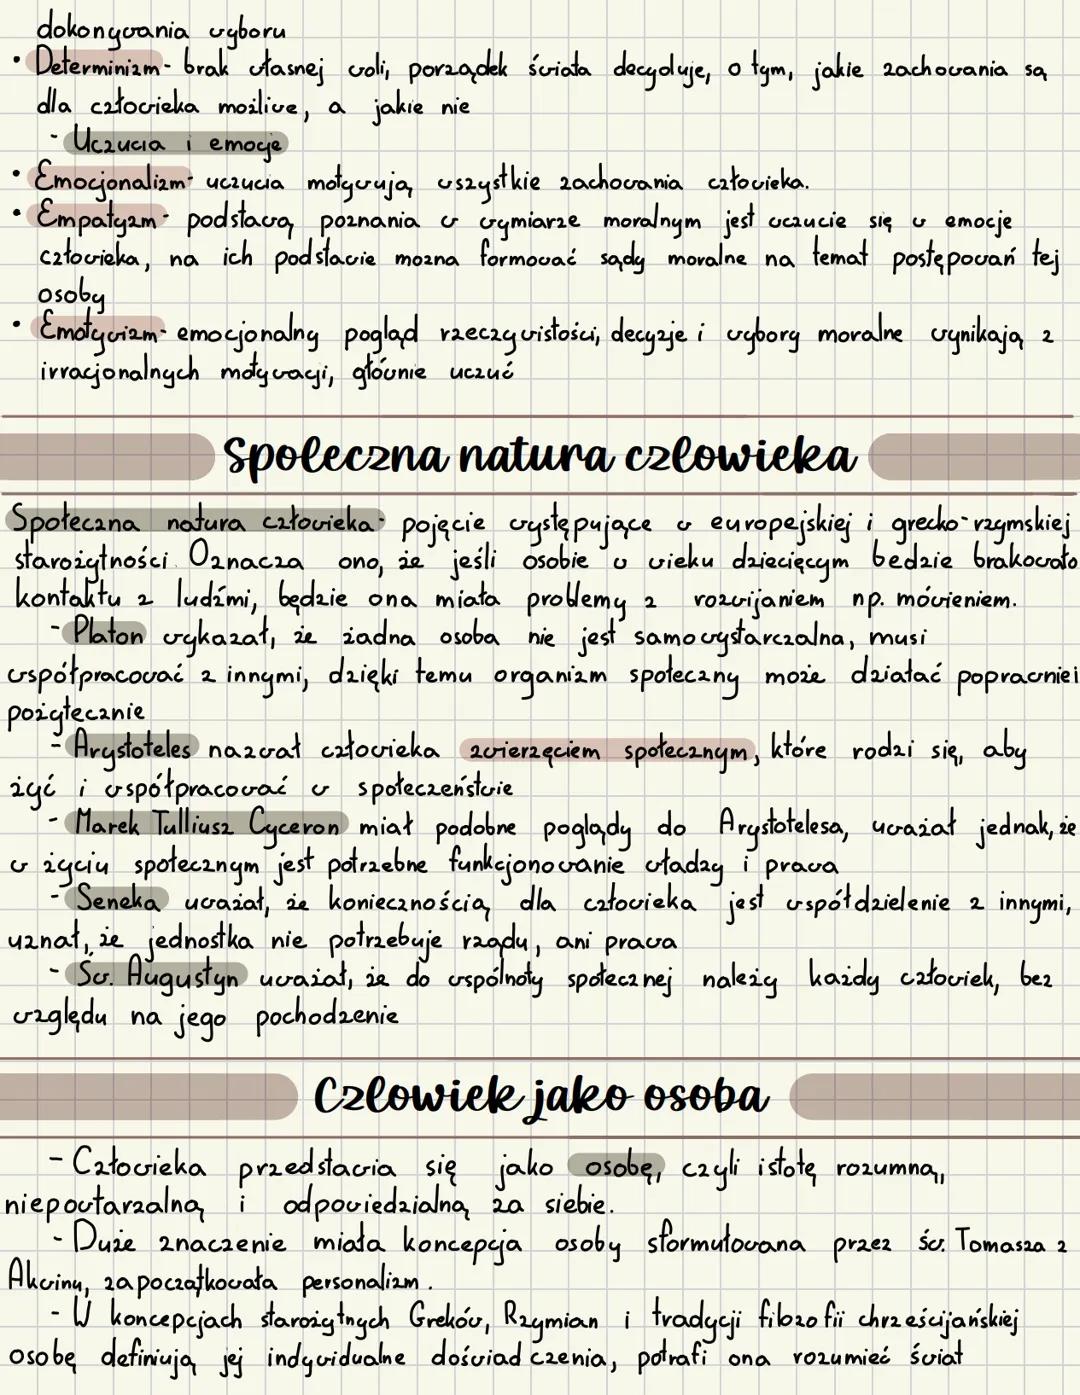 dokonywania wyboru
• Determinizm- brak własnej woli, porządek świata decyduje, o tym, jakie zachowania są
dla człowieka możliwe, a jakie nie
- Uczucia i emocje
• Emocjonalizm- uczucia motywują wszystkie zachowania człowieka.
• Empatyzm- podstawą poznania w wymiarze moralnym jest wczucie się w emocje
człowieka, na ich podstawie można formować sądy moralne na temat postępowań tej
osoby
• Emotywizm- emocjonalny pogląd rzeczywistości, decyzje i wybory moralne wynikają z
irracjonalnych motywacji, głównie uczuć
Społeczna natura człowieka
Społeczna natura człowieka- pojęcie występujące w europejskiej i grecko-rzymskiej
starożytności. Oznacza ono, że jeśli osobie w wieku dziecięcym bedzie brakowało
kontaktu z ludźmi, będzie ona miała problemy z rozwijaniem np. mówieniem.
- Platon wykazał, że żadna osoba nie jest samowystarczalna, musi
współpracować z innymi, dzięki temu organizm społeczny może działać poprawnie i
pożytecznie
- Arystoteles nazwał człowieka zwierzęciem społecznym, które rodzi się, aby
żyć i współpracować w społeczeństwie
- Marek Tulliusz Cyceron miał podobne poglądy do Arystotelesa, uważał jednak, że
w życiu społecznym jest potrzebne funkcjonowanie władzy i prawa
- Seneka uważał, że koniecznością dla człowieka jest współdzielenie z innymi,
uznał, że jednostka nie potrzebuje rządu, ani prawa
- Św. Augustyn uważał, że do wspólnoty społecznej należy każdy człowiek, bez
względu na jego pochodzenie
Człowiek jako osoba
- Człowieka przedstawia się jako osobę, czyli istotę rozumną,
niepowtarzalną i odpowiedzialną za siebie.
- Duże znaczenie miała koncepcja osoby sformułowana przez św. Tomasza z
Akwinu, zapoczątkowała personalizm.
- W koncepcjach starożytnych Greków, Rzymian i tradycji filozofii chrześcijańskiej
osobę definiują jej indywidualne doświadczenia, potrafi ona rozumieć świat